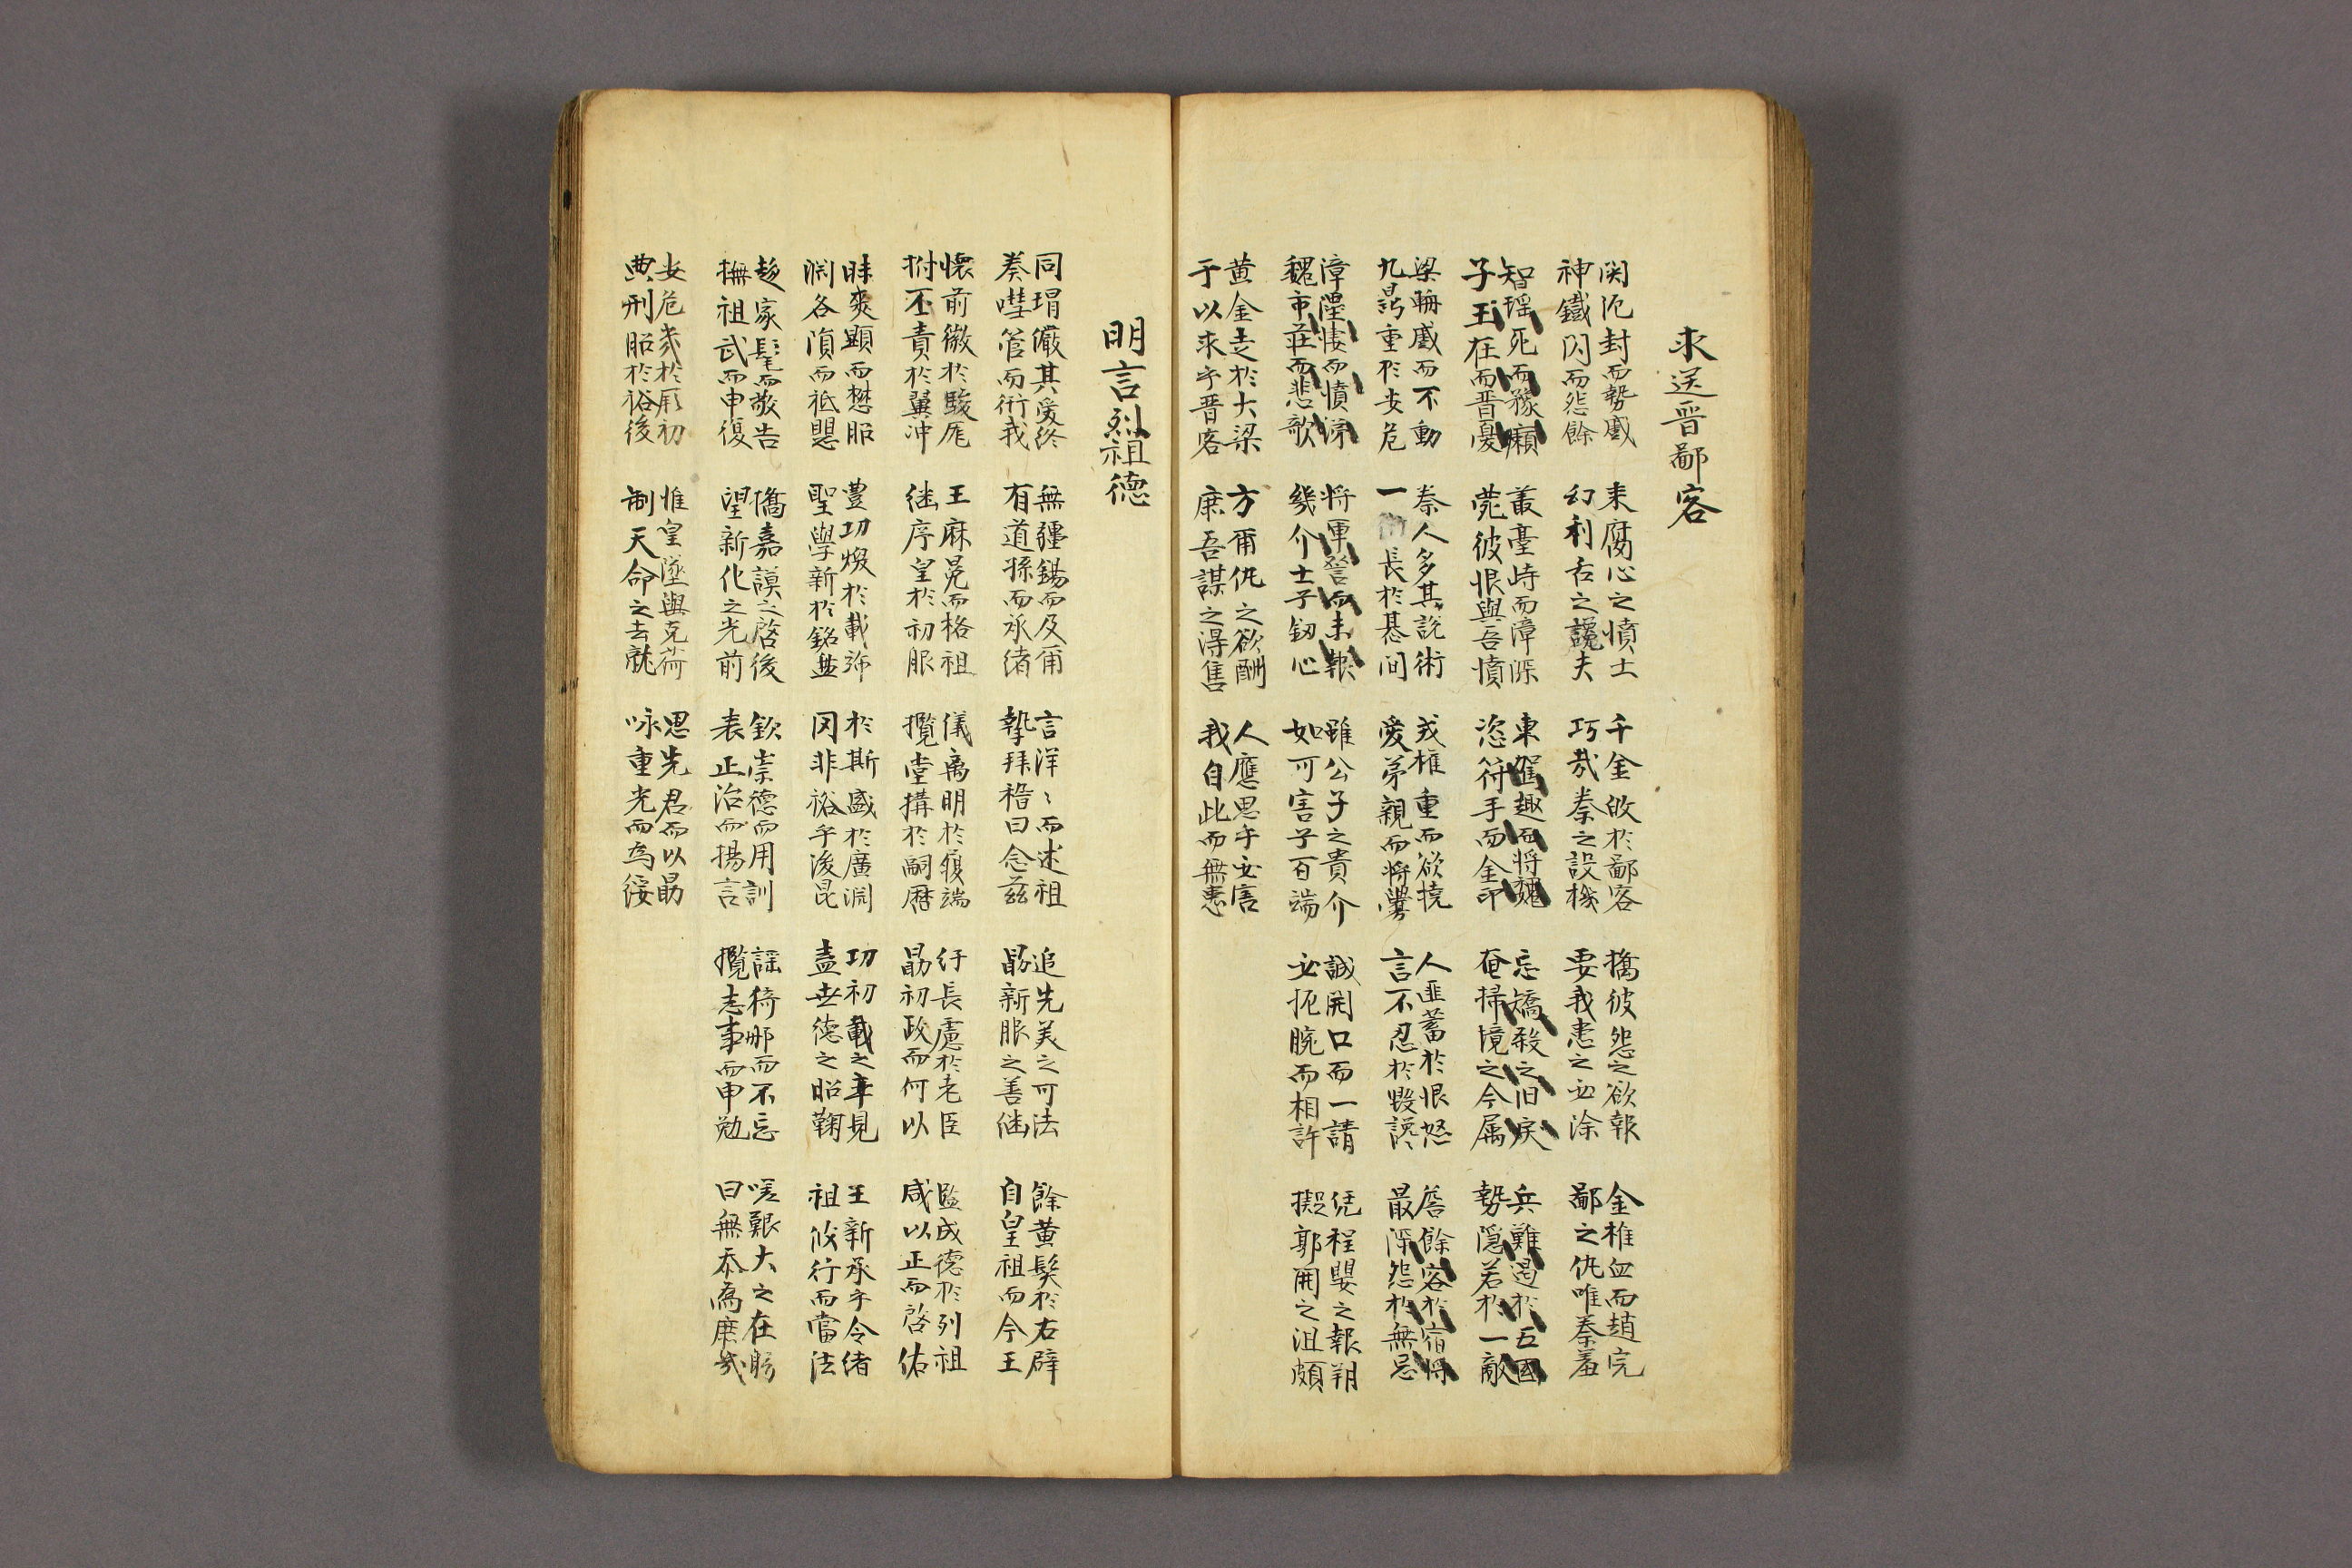 求送晋鄙客
関厄封而勢蹙 来腐心之憤士 千金啟於鄙客 撟彼怨之欲報 金椎血而趙完
神鐵閃而怨餘 幻利舌之讒夫 巧哉秦之設機 要我患之必除 鄙之仇唯秦羞
智瑶死而豫癩 叢臺峙而漳深 東駕趣而将魏 忘矯殺之旧戾 兵難遏於五國
子玉在而晋憂 菀彼恨與吾憤 恣符手而金印 奄掃境之今属 勢隠若於一敵
梁輈蹙而不動 秦人多其說術 戎權重而欲撓 人匪蓄於恨怒 啓餘客於宿将
九鼎重於安危 一長於碁间 愛弟親而将 言不忍於毀讒 最深怨於無忌
漳悽而憤深 将軍訾而未報 雖公子之貴介 誠開口而一請 凭程嬰之報朔
魏市莊而悲歌 幾介士子釼心 如可害子百端 必扼腕而相許 擬郭開之沮頗
黄金走於大梁 方爾仇之欲酬 人應思乎必害
于以求乎晋客 庶吾謀之得售 我自此而無患
明言烈祖德
同瑁儼其愛終 無疆錫而及爾 言洋〻而述祖 追先美之可法 餘黄髮於右辟
奏嘒管而衍我 有道孫而承緒 摯拜稽曰念玆 勗新服之善継 自皇祖而今王
懷前徽於駿厖 王麻冕而格祖 儀离明於履端 紆長慮於老臣 監成德於列祖
拊丕責於翼冲 継序皇於初服 攬堂搆於嗣曆 勗初政而何以 咸以正而啓佑
昧爽顯而懋昭 豊功煥於載沛 於斯盛於廣淵 功初載之聿見 王新承乎令緒
渊各湏而祗愳 聖學新於銘盤 罔非裕乎後昆 盡世德之昭鞠 祖攸行而當法
趍家髦而敬告 僑嘉謨之啓後 欽崇德而用訓 謡猗那而不忘 嗟艱大之在眇
撫祖武而申復 望新化之光前 表正治而揚言 攬志事而申勉 曰無忝為庶哉
安危兆於厥初 惟皇墜與克荷 思先君而以勗
典刑昭於裕後 制天命之去就 咏重光而為綏